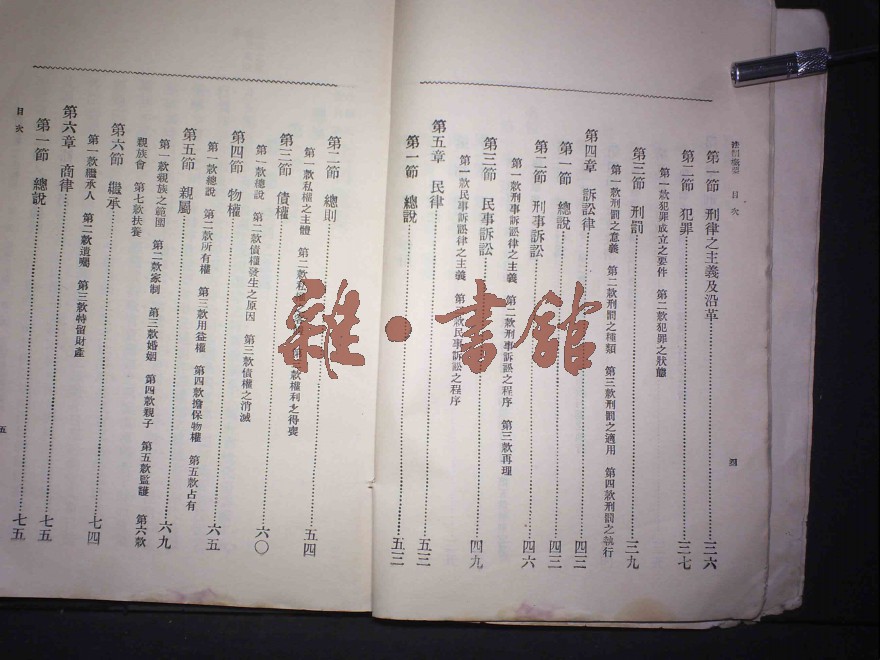 目次
四
第一節 刑律之主義及沿革 三六
第二節 犯罪 三七
第一款犯罪成立之要件 第二款犯罪之狀態
第三節 刑罰 三九
第一款刑罰之意義 第二款刑罰之種類 第三款刑罰之適用 第四款刑罰之執行
第四章 訴訟律 四三
第一節 總說 四三
第二節 刑事訴訟 四六
第一款刑事訴訟律之主義 第二款刑事訴訟之程序 第三款再理
第三節 民事訴訟 四九
第一款民事訴訟律之主義 第二款民事訴訟之程序
第五章 民律 五三
第一節 總說 五三
第二節 總則 五四
第一款私權之主體 第二款私權 權利之得喪
第三節 債權 六〇
第一款總說 第二款債權發生之原因 第三款債權之消滅
第四節 物權 六五
第一款總說 第二款所有權 第三款用益權 第四款擔保物權 第五款占有
第五節 親屬 六九
第一款親族之範圍 第二款家制 第三款婚姻 第四款親子 第五款監護 第六款
親族會 第七款扶養
第六節 繼承 七四
第一款繼承人 第二款遺囑 第三款特留財產
第六章 商律 七五
第一節 總說 七五
目次
五
雜·書館